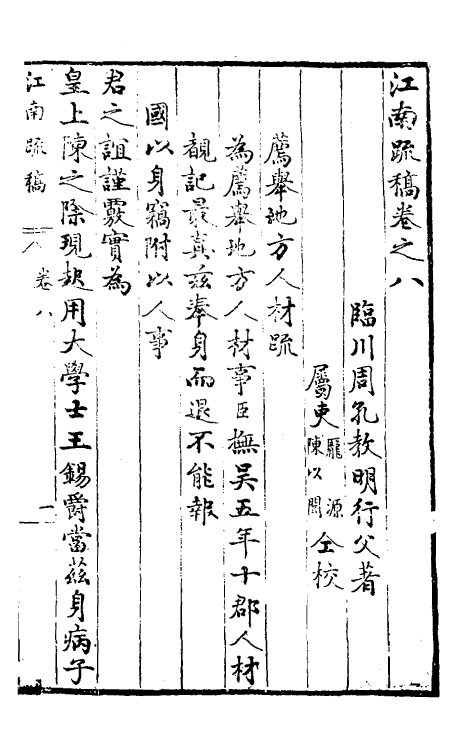 江南疏稿卷之八
臨川周孔教明行父著
屬吏龐源陳以聞仝校
薦舉地方人材疏
為薦舉地方人材事臣撫吳五年十郡人材
覩記最真茲奉身而退不能報
國以身竊附以人事
君之誼謹覈實為
皇上陳之除現起用大學士王錫爵當茲身病子
江南疏稿 卷八 一